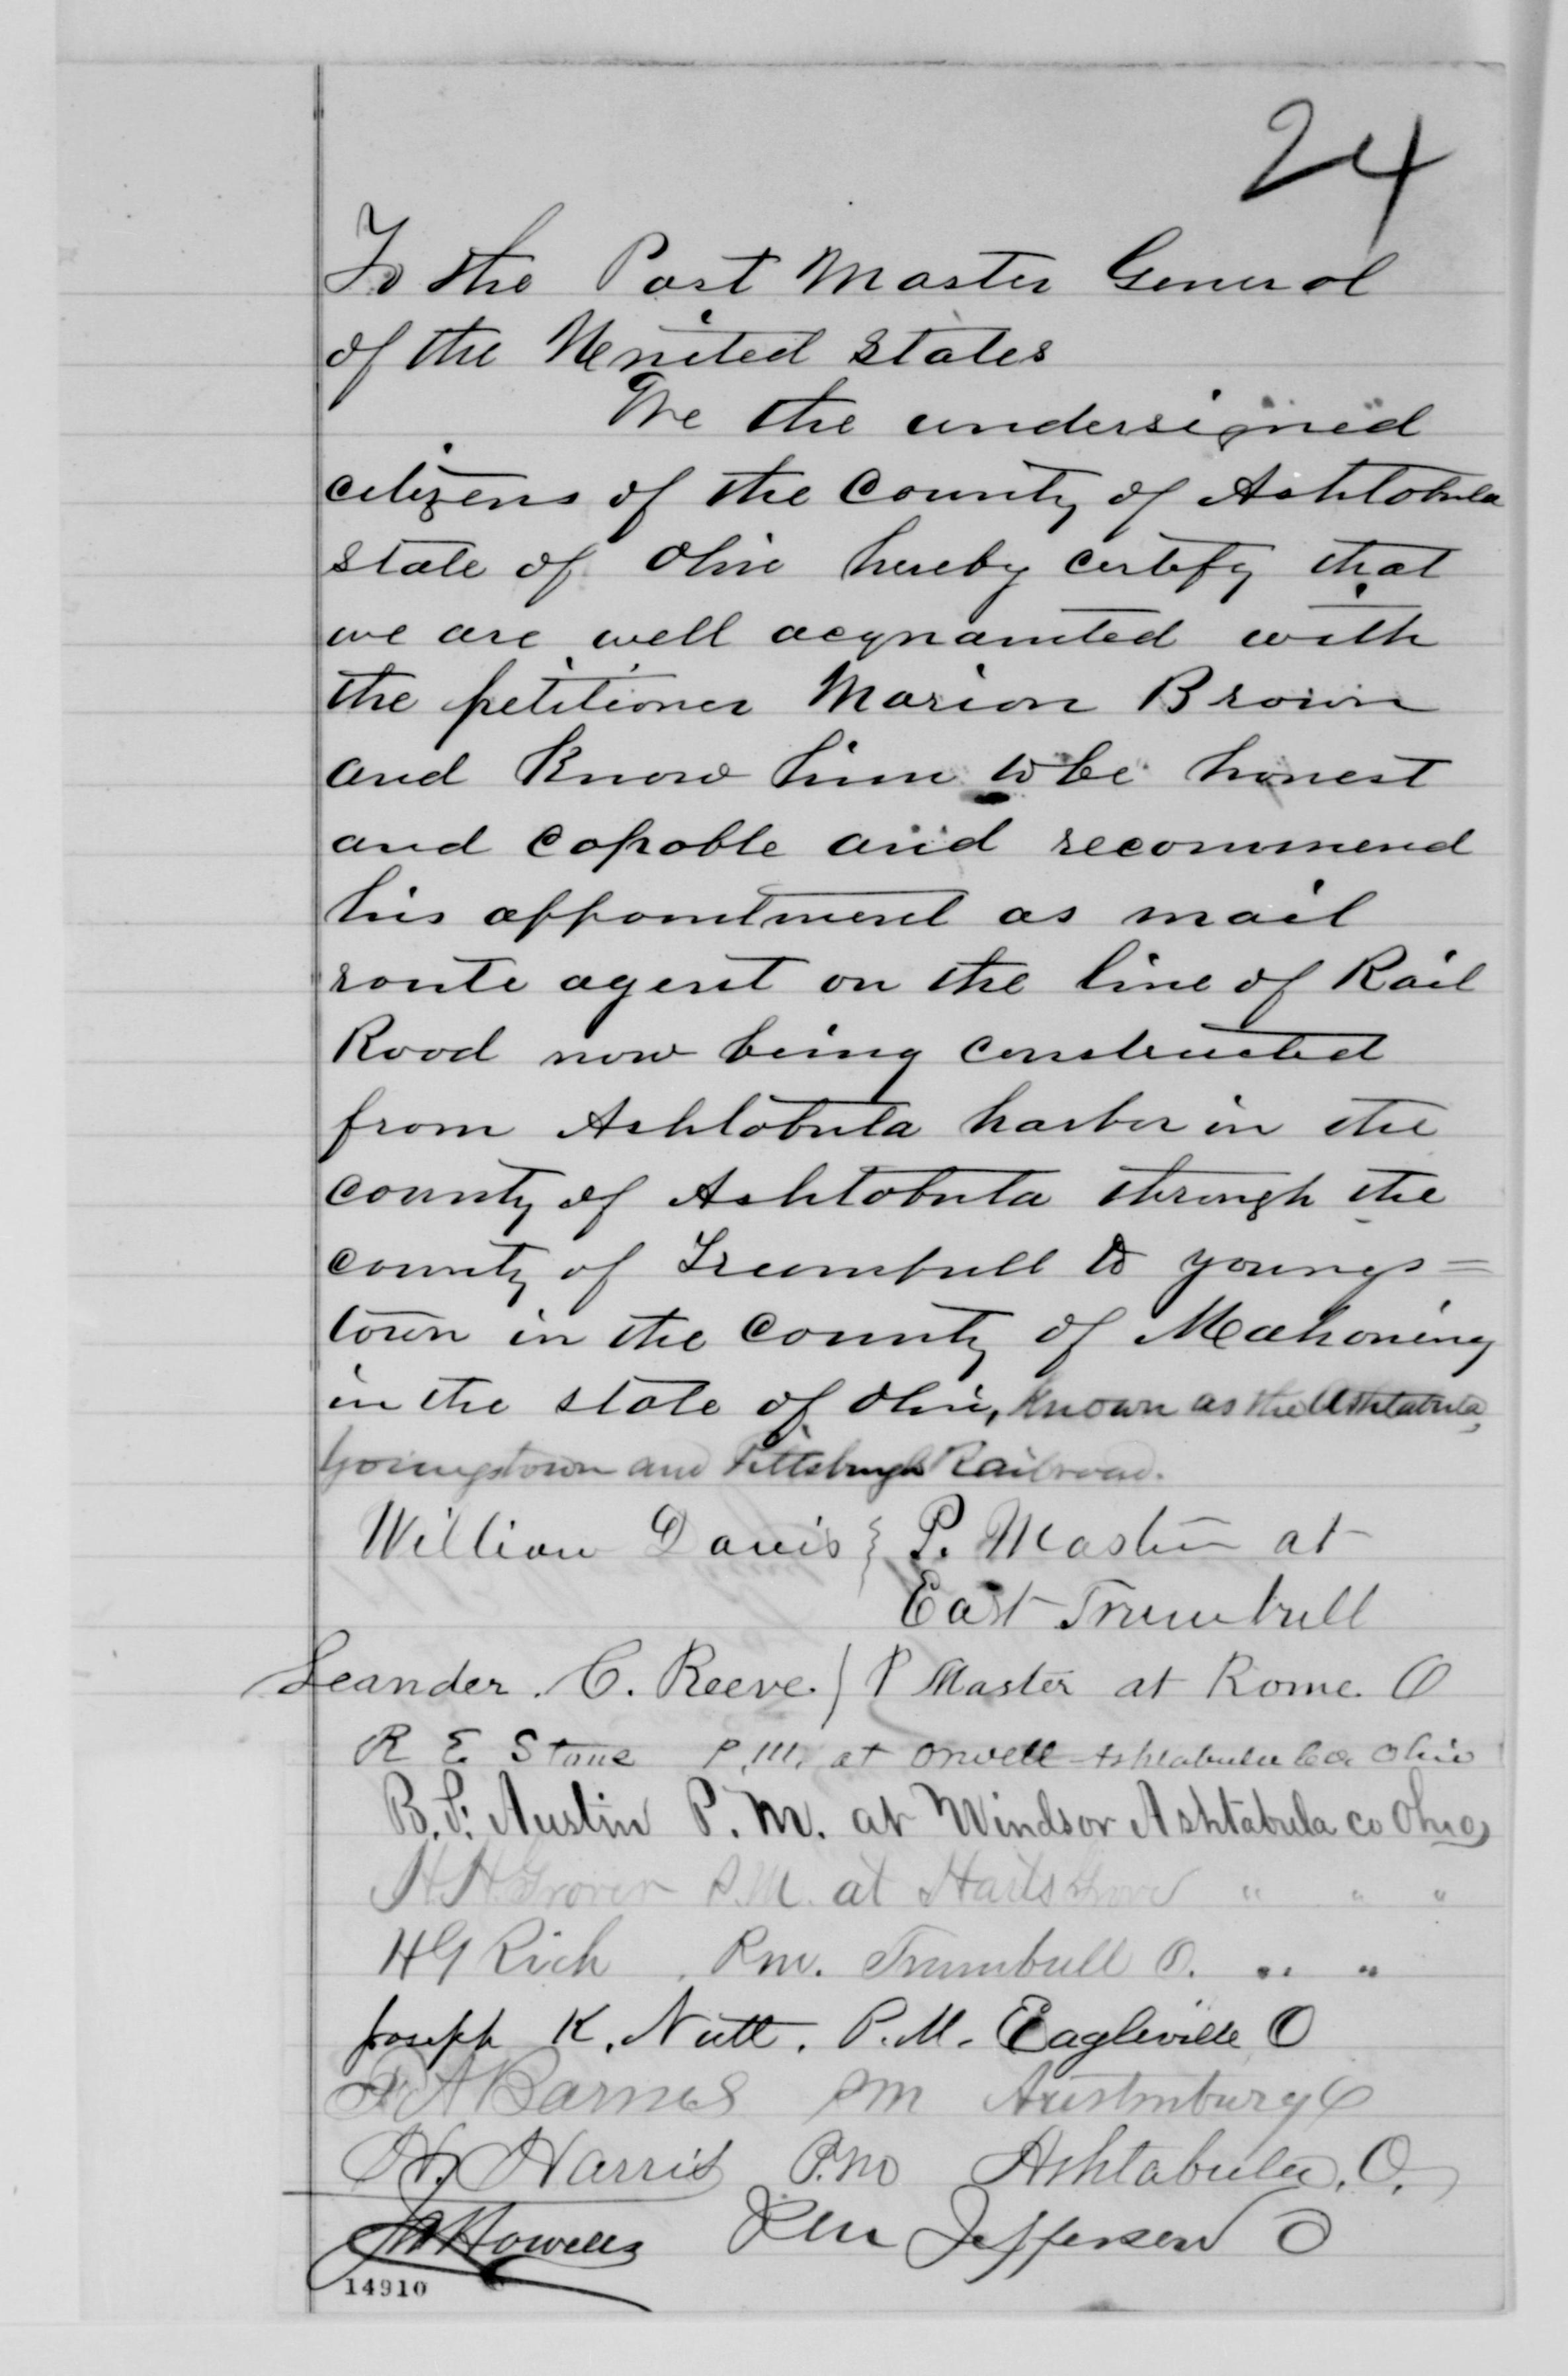 24
To the Post Master General
of the United States
We the undersigned
citizens of the County of Ashtabula
state of Ohio hereby certify that
we are well acquainted with
the petitioner Marion Brown
and know him to be honest
and capable and recommend
his appointment as mail
route agent on the line of Rail
Road now being constructed
from Ashtabula harbor in the
county of Ashtabula through the
county of Trumbull to youngs=
town in the County of Mahoning
in the state of Ohio, known as the Ashtabula,
Youngstown and Pittsburgh Railroad.
William Davis } P. Master at
East Trumbull
Leander C. Reeve. ) P Master at Rome. O
R E Stone P.M. at Orwell Ashtabula Co. Ohio
B. F. Austin P. M. at Windsor Ashtabula co Ohio
H H Grover P.M. at Harts Grove " " "
H G Rich P.m. Trumbull O. " "
Joseph K. Nutt. P. M. Eagleville O
A Barnes P M Austinburg O
H. Harris P.M Ashtabula, O.
Howells P M Jefferson O
14910